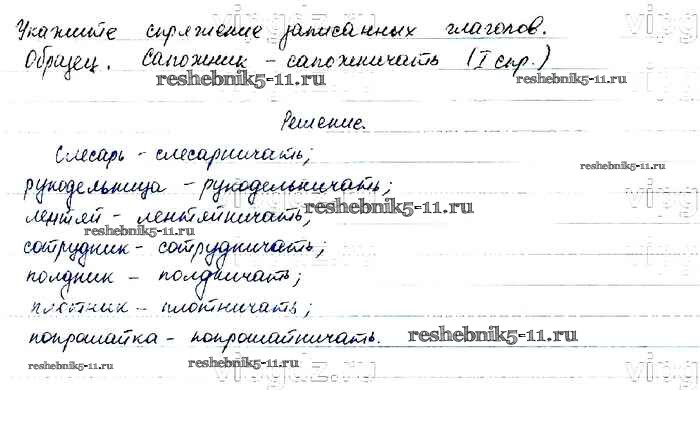 Укажите спряжение записанных глаголов.
Образец. Сапожник – сапожничать (I спр.)
reshebnik5-11.ru reshebnik5-11.ru
Решение.
Слесарь – слесарничать;
reshebnik5-11.ru
рукодельница – рукодельничать;
лентяй – лентяйничать;
reshebnik5-11.ru
reshebnik5-11.ru
сотрудник – сотрудничать;
полдник – полдничать;
плотник – плотничать;
попрошайка – попрошайничать.
reshebnik5-11.ru
reshebnik5-11.ru reshebnik5-11.ru
vipgdz.ru